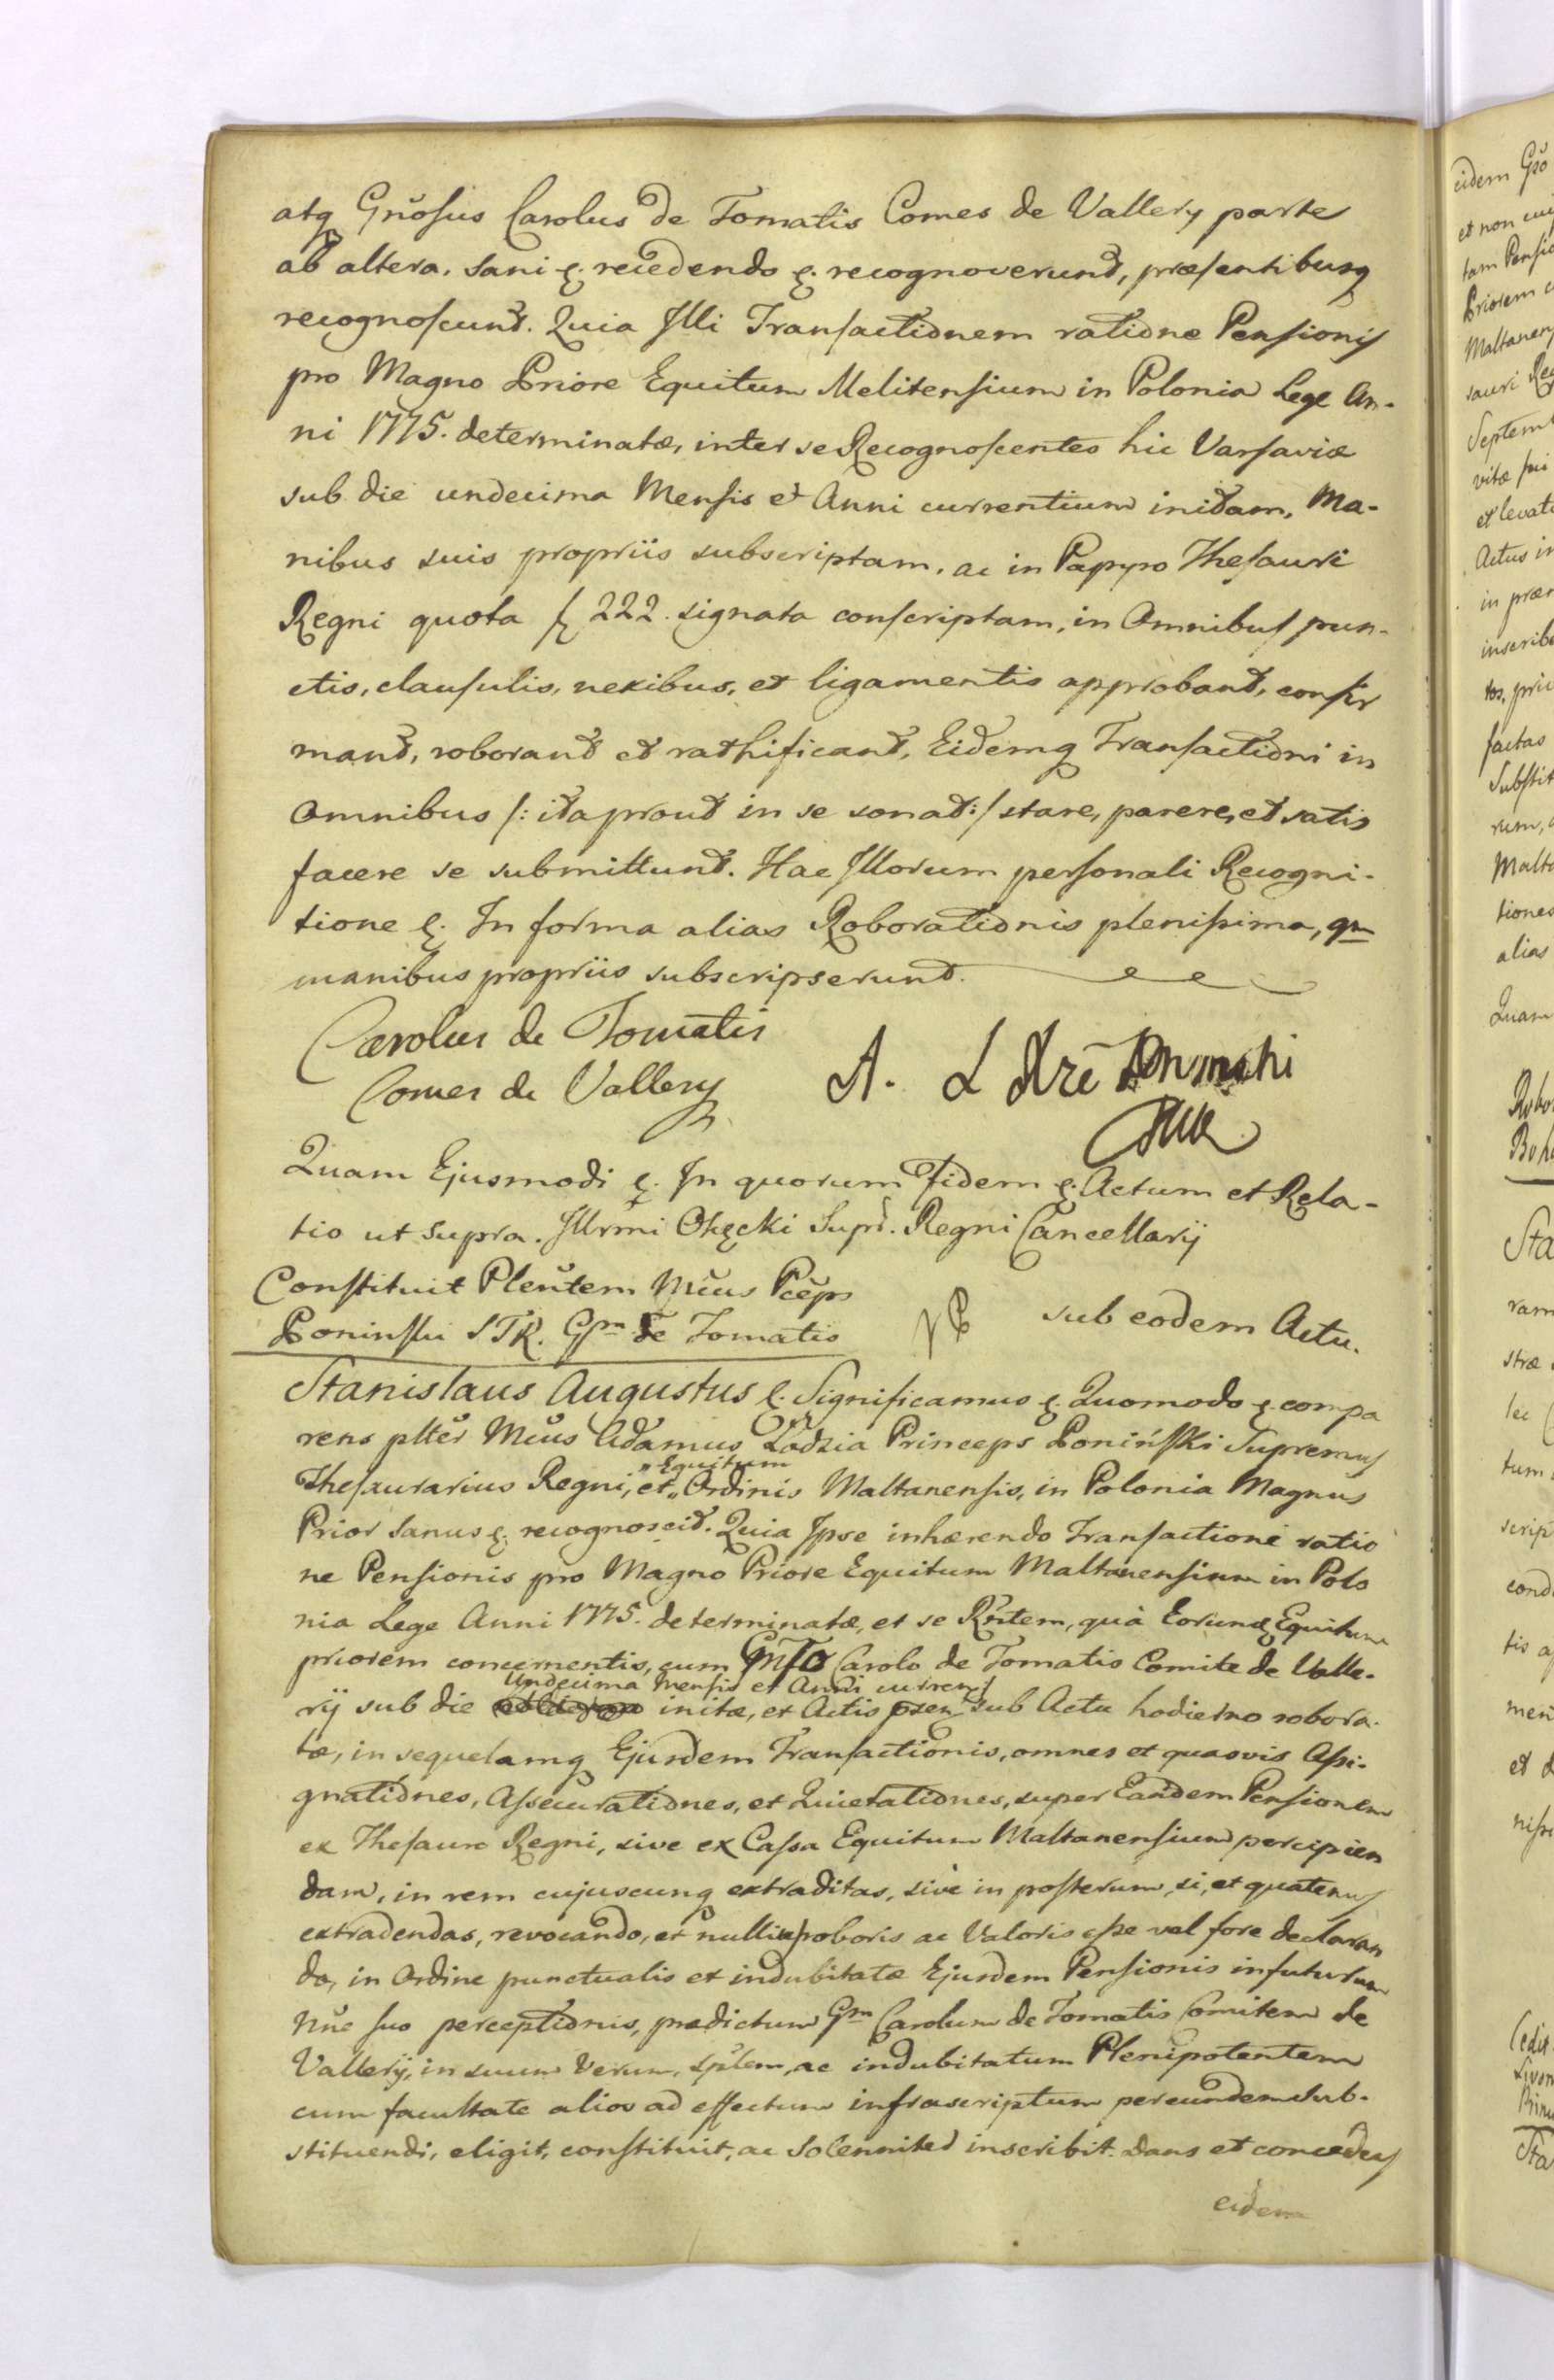 atq Gnosus Carolus de Tomatis Comes de Vallery parte
ab altera. Sani &. recedendo &. recognoverunt, præsentibusq
recognoscunt. Quia Illi Transactionem ratione Pensionis
pro Magno Priore Equitum Melitensium in Polonia Lege An-
ni 1775. determinatæ, inter se Recognoscentes hic Varsaviæ
sub die undecima Mensis et Anni currentium initam, Ma-
nibus suis propriis subscriptam, ac in Papyro Thesauri
Regni quota 222. signata conscriptam, in Omnibus pun-
ctis, clausulis, nexibus, et ligamentis approbant, confir
mant, roborant et rathificant, Eidemq Transactioni in
Omnibus /: ita prout in se sonat :/ stare, parere, et satis
facere se submittunt. Hac Illorum personali Recogni-
tione &. In forma alias Roborationis plenissima, qm
manibus propriis subscripserunt.
Carolus de Tomatis
Comes de Vallery
A. L
Quam Ejusmodi &. In quorum Fidem &. Actum et Rela-
tio ut supra. Illrmi Okęcki Supr. Regni Cancellarij
Constituit Plentem Mcus Pceps
Poninski STR. Gm De Tomatis
sub eodem Actu.
Stanislaus Augustus &. Significamus &. Quomodo &. compa
rens plter Mcus Adamus Łodzia Princeps Poniński Supremus
Thesaurarius Regni, et „ Equitum Ordinis Maltanensis, in Polonia Magnus
Prior Sanus &. recognoscit. Quia Ipse inhærendo Transactioni ratio
ne Pensionis pro Magno Priore Equitum Maltanensium in Polo
nia Lege Anni 1775. determinatæ, et se Rntem, quà Eorund Equitum
priorem concernentis, cum Carolo de Tomatis Comite de Valle-
rij sub die Undecima Mensis et Anni curren initæ, et Actis præn sub Actu hodierno robora-
tæ, in sequelamq Ejusdem Transactionis, omnes et quasvis Assi-
gnationes, Assecurationes, et Quietationes, super Eandem Pensionem
ex Thesauro Regni, sive ex Cassa Equitum Maltanensium percipien
dam, in rem cujuscunq extraditas, sive in posterum, si, et quatenus
extradendas, revocando, et nullius roboris ac Valoris esse vel fore declaran
do, in Ordine punctualis et indubitatæ Ejusdem Pensionis in futurum
Nne suo perceptionis, prædictum Gm Carolum de Tomatis Comitem de
Vallerij, in suum Verum, splem, ac indubitatum Plenipotentem
cum facultate alios ad effectum infrascriptum per eundem sub-
stituendi, eligit, constituit, ac Solenniter inscribit. Dans et concedens
eidem